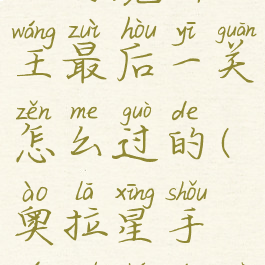 wáng zuì hòu yī guān
王最后一关
zěn me guò de
怎么过的(
ào lā xīng shǒu
奥拉星手